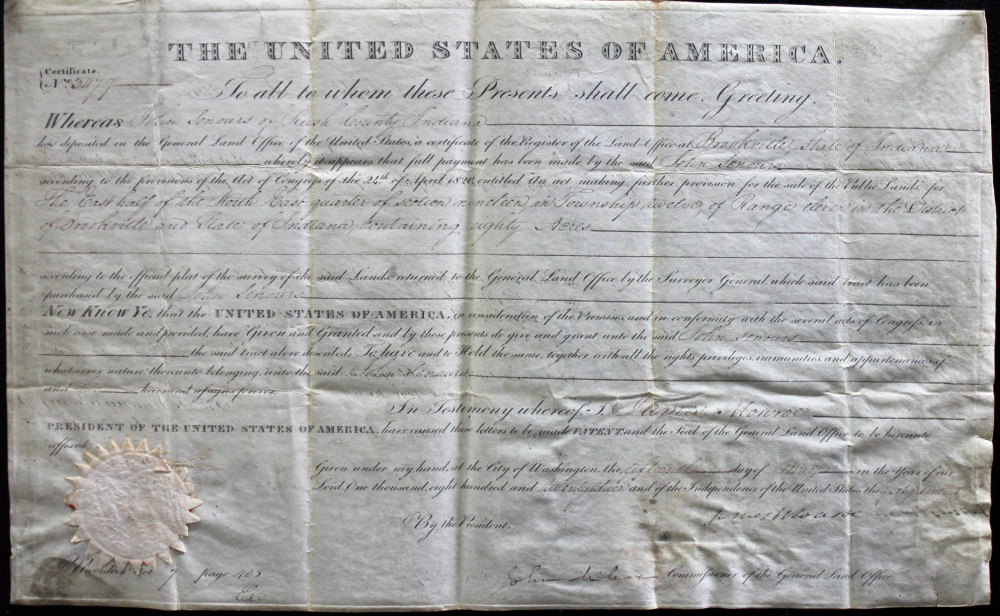 THE UNITED STATES OF AMERICA.
Certificate
No. 3479
To all to whom these Presents shall come, Greeting.
Whereas John Senours of Rush County, Indiana
has deposited in the General Land Office of the United States, a certificate of the Register of the Land Office at Brookville, State of Indiana
whereby it appears that full payment has been made by the said John Senours
according to the provisions of the Act of Congress of the 24th of April 1820, entitled An act making further provision for the sale of the Public Lands, for
The East half of the East quarter of section nineteen, in Township twelve of Range in the District
of Brookville and State of Indiana, containing eighty Acres
according to the official plat of the survey of the said Lands, returned to the General Land Office by the Surveyor General, which said tract has been
purchased by the said John Senours
Now Know Ye, that the UNITED STATES OF AMERICA, in consideration of the Premises, and in conformity with the several acts of Congress, in
such case made and provided, have Given and Granted, and by these presents do give and grant unto the said John Senours
the said tract above described; To have and to Hold the same, together with all the rights, privileges, immunities, and appurtenances of
whatsoever nature, thereunto belonging, unto the said John Senours
and
In Testimony whereof, I, James Monroe
PRESIDENT OF THE UNITED STATES OF AMERICA, have caused these letters to be made PATENT, and the Seal of the General Land Office to be hereunto
affixed.
Given under my hand, at the City of Washington, the day of in the Year of our
Lord One thousand, eight hundred and and of the Independence of the United States the
James Monroe
By the President,
Recorded Vol 7 page 403
Commissioner of the General Land Office